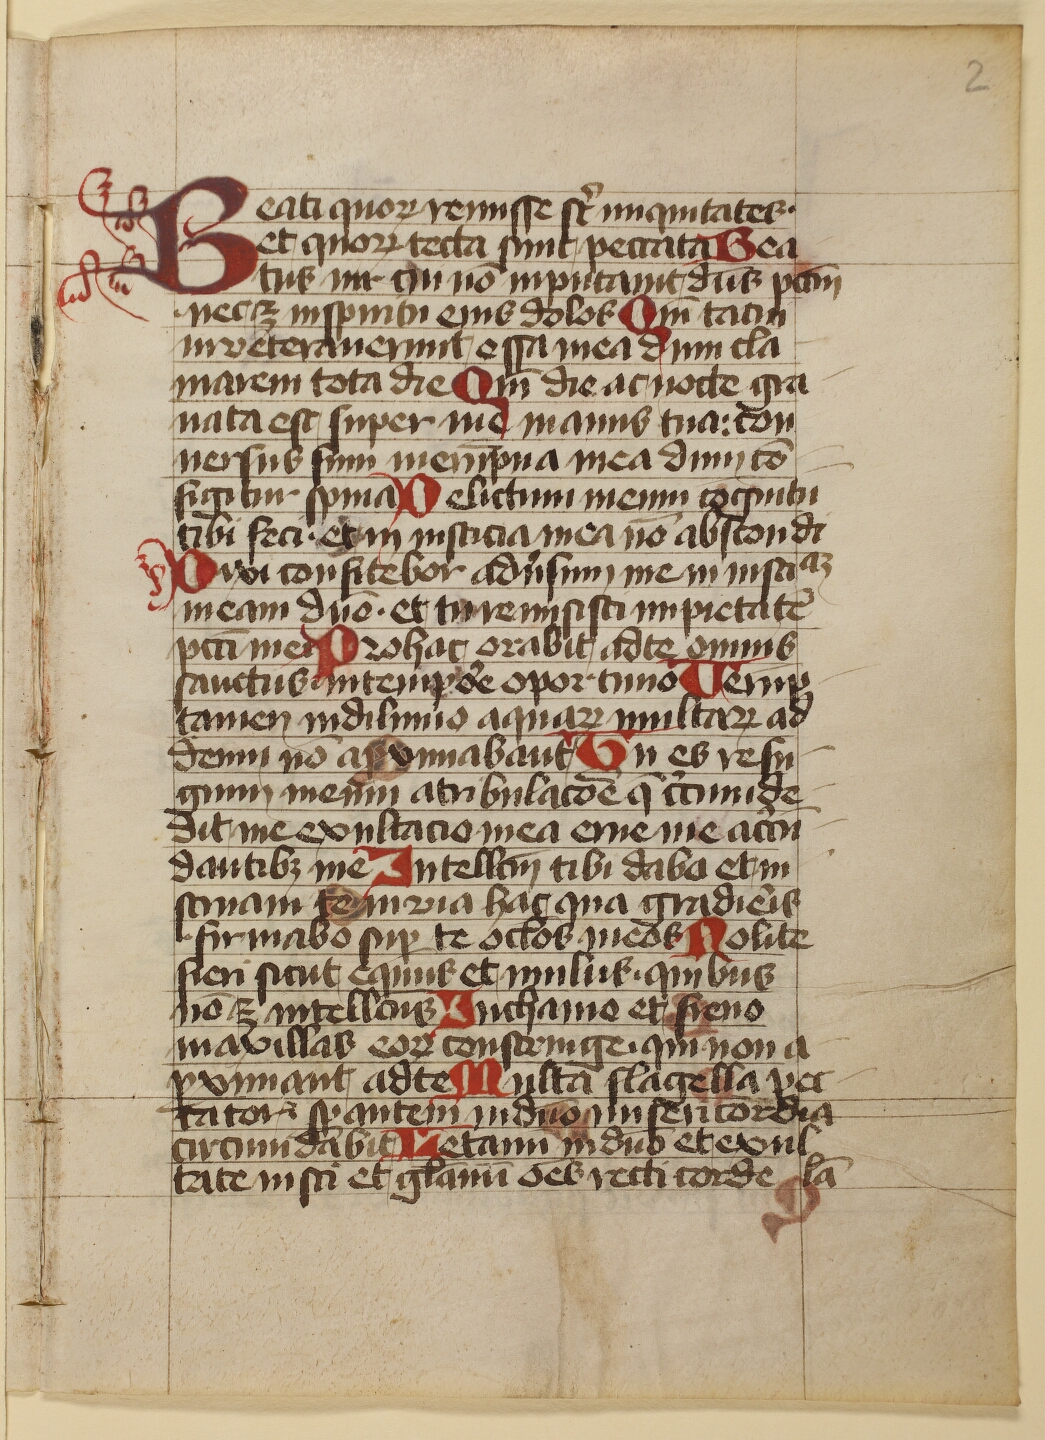 2
Beati quoꝝ remisse sūt iniquitates·
et quoꝝ tecta sunt peccata Bea
tus uir cui nō inputauit dūs pctm̄
necꝫ inspiritu eius dolos Qm̄ tacui
inveterauerunt ossa mea dum cla
marem tota die Qm̄ die ac nocte gra
uata est super me manus tua: con
uersus sum in erūpna mea dum cō
figitur spina Delictum meum cognitu
tibi feci· et in iusticia mea nō abscondi
Dixi confitebor adūsum me in iusciaꝫ
meam dn̄o· et tu remisisti impietatē
pcti mei Pro hac orabit adte omnis
sanctus intempoꝛe oportuno Verup
tamen indiluuio aquaꝝ multaꝝ ad
deum nō aproximabant Tu es refu
gium meum atribulacōe q̄ circumde
dit me exultacio mea erue me acircū
dantibꝫ me Intellcm̄ tibi dabo et in
struam te in via hac qua gradieris
firmabo suꝑ te oclos meos Nolite
fieri sicut equus et mulus· quibus
nō ē intellcus Inchamo et freno
maxillas eoꝝ constringe· qui non a
proximant adte Multa flagella pec
catoris sp̄antem indn̄o misericordia
circumdabit Letami indn̄o et exul
tate iusti et gl̄amī oēs recti corde Gl̄a